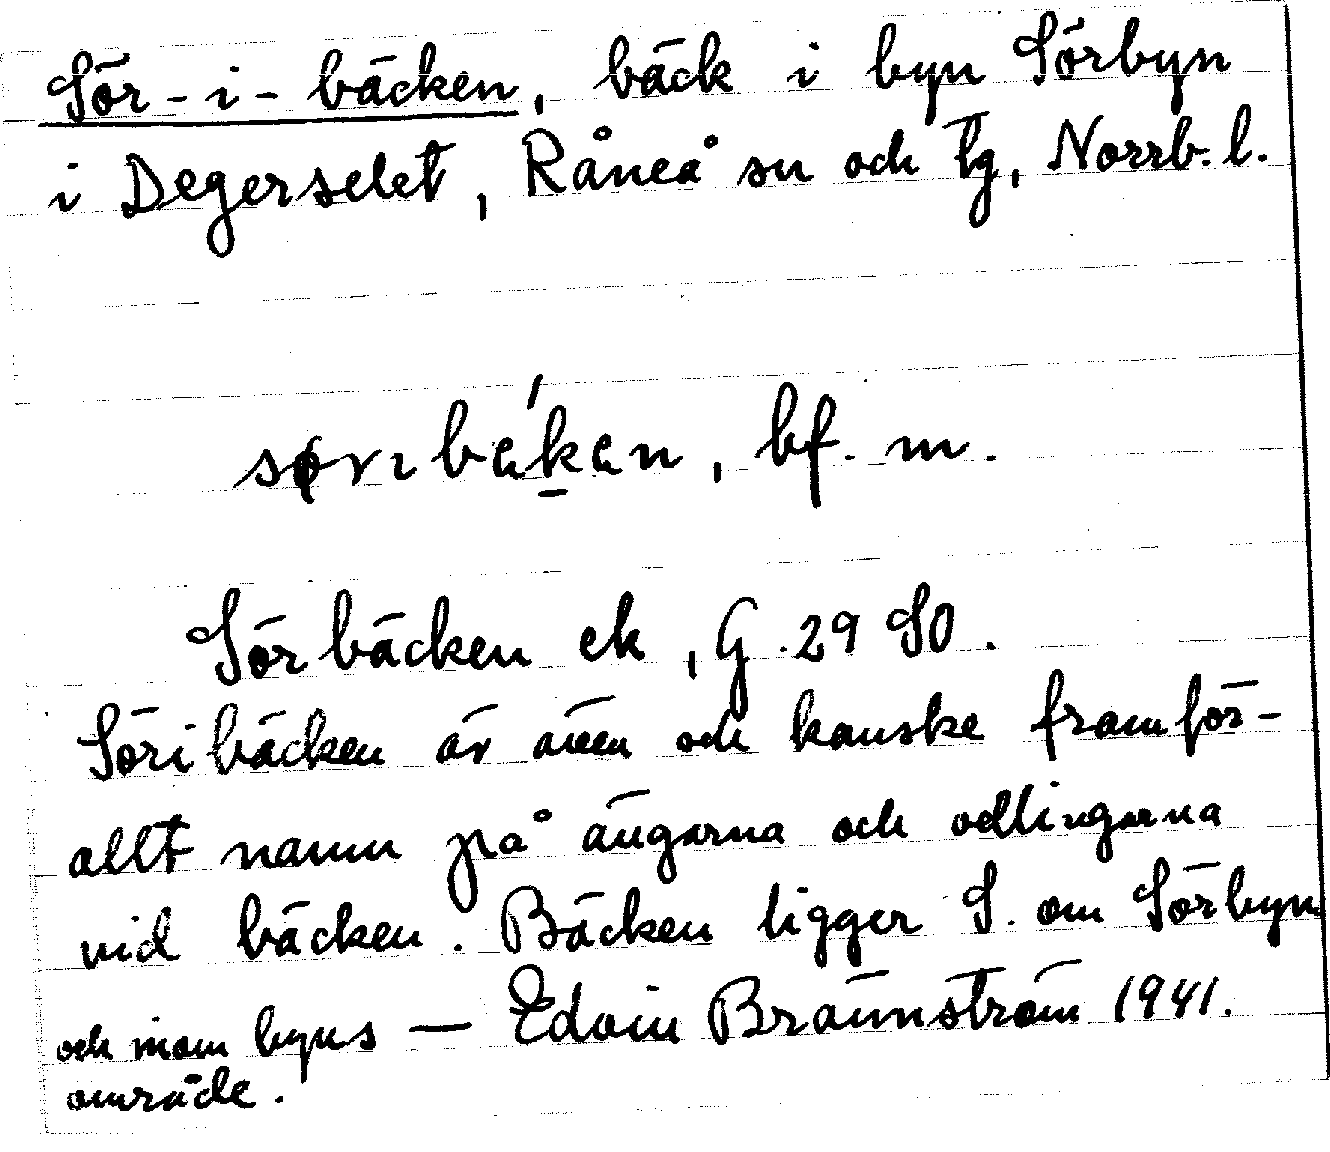 Sör-i-bäcken, bäck i byn Sörbyn
i Degerselet, Råneå sn och tg, Norrb. l.
bf. m.
Sörbäcken ek, G. 29 SO.
Söribäcken är även och kanske framför-
allt namn på ängarna och odlingarna
vid bäcken. Bäcken ligger S. om Sörbyn
och inom byns — Edvin Brännström 1941.
område.